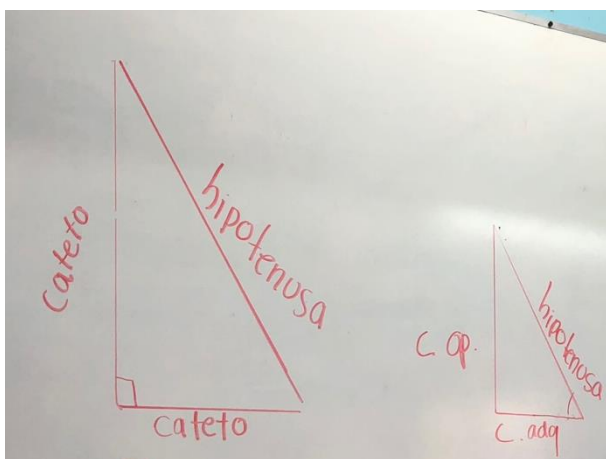 cateto
hipotenusa
cateto
C. op.
hipotenusa
C. adq